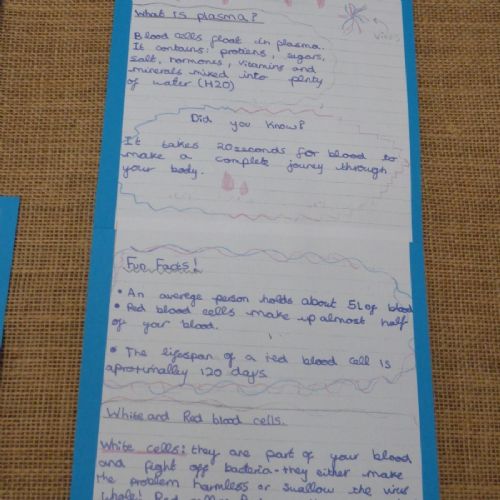 What is plasma?
virus
Blood cells float in plasma.
It contains: protiens, sugars,
salt, hormones, vitamins and
minerals mixed into plenty
of water (H2O)
Did you know?
It takes 20seconds for blood to
make a complete jouney through
your body.
Fun Facts!
• An averege person holds about 5L of blood
• Red blood cells make up almost half
of your blood.
• The lifespan of a red blood cell is
aproximalley 120 days
White and Red blood cells.
White cells: they are part of your blood
and fight off bacteria - they either make
the problem harmless or swallow the virus
whole! Red